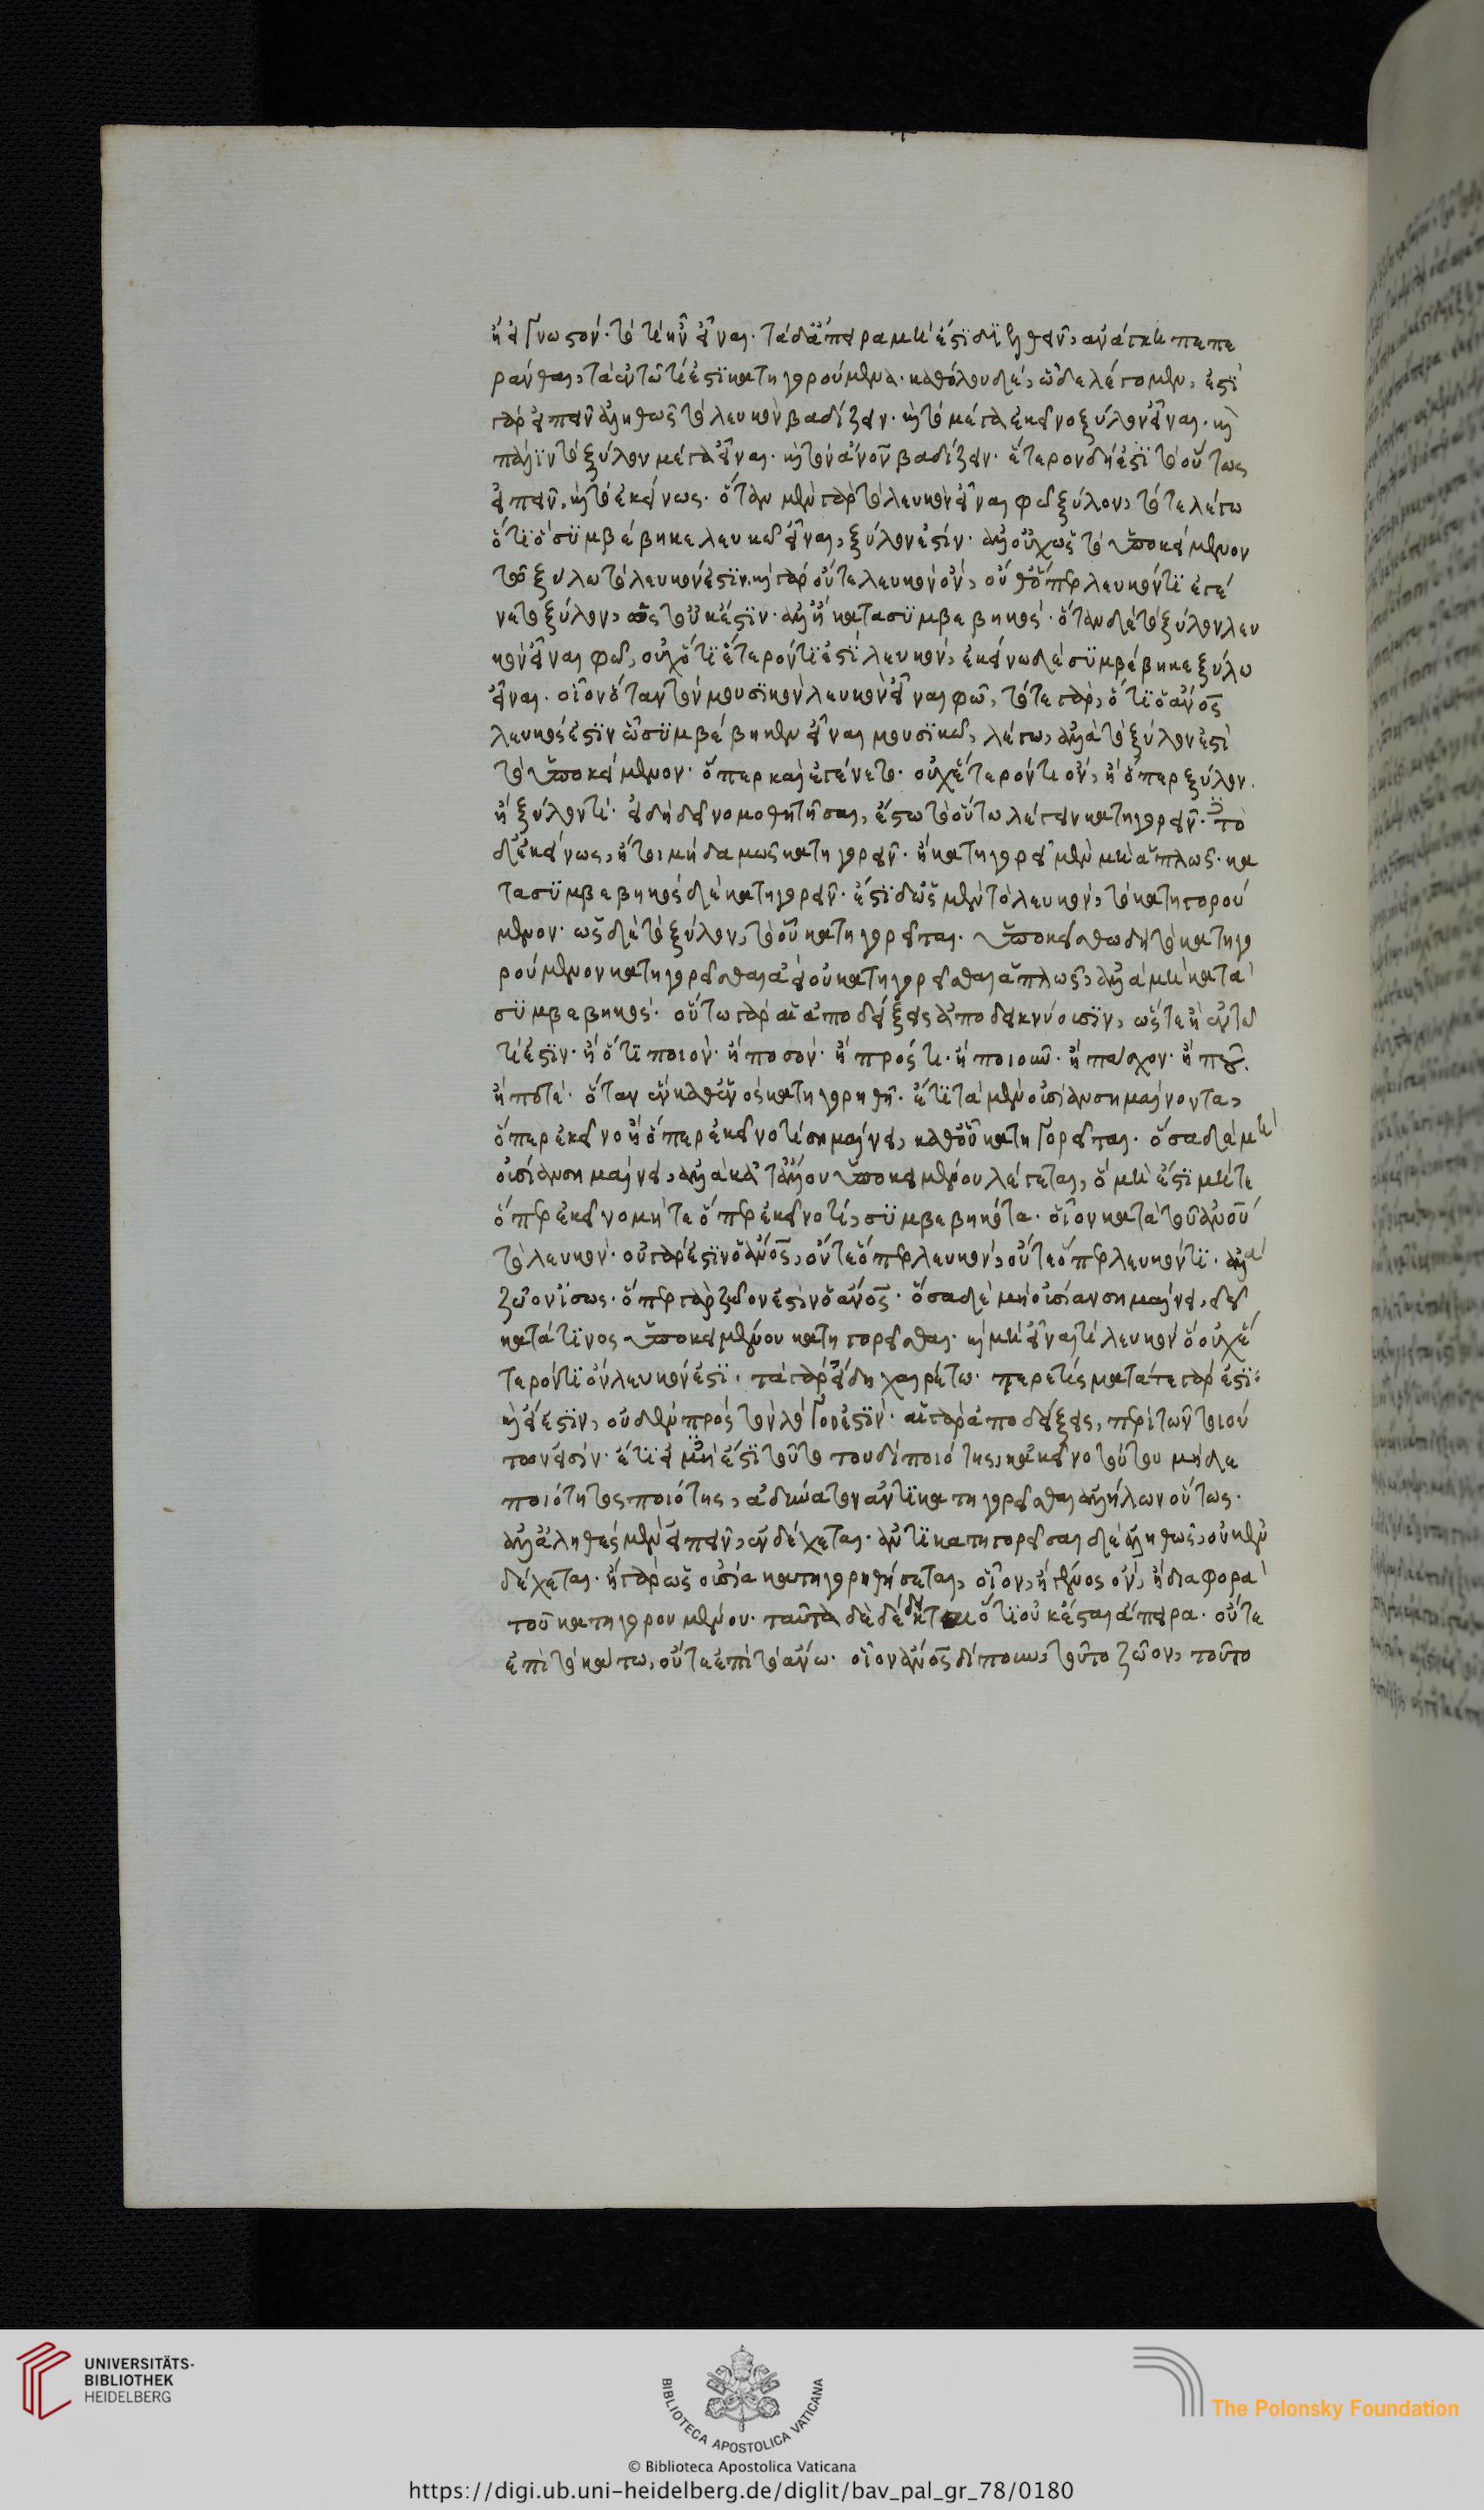 ἢ εἰ γνωστὸν τὸ τί ἦν εἶναι· τὰ δ' ἄπειρα μὴ ἔστι διελθεῖν, ἀνάγκη πεπε
ράνθαι, τὰ ἐν τῶ τί ἐστι κατηγορούμενα· καθόλου δὲ, ὧδε λέγομεν, ἔστι
γὰρ εἰπεῖν ἀληθῶς τὸ λευκὸν βαδίζειν· καὶ τὸ μέγα ἐκεῖνο ξύλον εἶναι· καὶ
πάλιν τὸ ξύλον μέγα εἶναι· καὶ τὸν ἄνον βαδίζειν· ἕτερον δή ἐστι τὸ οὕτως
εἰπεῖν, καὶ τὸ ἐκείνως· ὅταν μὲν γὰρ τὸ λευκὸν εἶναι φῶ ξύλον, τότε λέγω
ὅτι ὃ συμβέβηκε λευκῶ εἶναι, ξύλον ἐστίν· ἀλλ' οὐχ ὡς τὸ ὑποκείμενον
τῶ ξύλω τὸ λευκόν ἐστιν· καὶ γὰρ οὔτε λευκὸν ὂν, οὔθ' ὅπερ λευκόν τι ἐγέ
νετο ξύλον, ὥστ' οὐκ ἔστιν· ἀλλ' ἢ κατὰ συμβεβηκός· ὅταν δὲ τὸ ξύλον λευ
κὸν εἶναι φῶ, οὐχ ὅτι ἕτερόν τι ἐστὶ λευκὸν, ἐκείνω δὲ συμβέβηκε ξύλω
εἶναι· οἷον ὅταν τὸν μουσικὸν λευκὸν εἶναι φῶ, τότε γὰρ, ὅτι ὁ ἄνος
λευκός ἐστιν ὧ συμβέβηκεν εἶναι μουσικῶ, λέγω, ἀλλὰ τὸ ξύλον ἐστὶ
τὸ ὑποκείμενον· ὅπερ καὶ ἐγένετο· οὐχ ἕτερόν τι ὂν, ἢ ὅπερ ξύλον·
ἢ ξύλον τί· εἰ δὴ δεῖ νομοθετῆσαι, ἔστω τὸ οὕτω λέγειν κατηγορεῖν· τὸ
δ' ἐκείνως, ἤτοι μηδαμῶς κατηγορεῖν· ἢ κατηγορεῖ μὲν μὴ ἁπλῶς· κα
τὰ συμβεβηκὸς δὲ κατηγορεῖν· ἔστι δ' ὡς μὲν τὸ λευκὸν, τὸ κατηγορού
μενον· ὡς δὲ τὸ ξύλον, τὸ οὗ κατηγορεῖται· ὑποκείσθω δὴ τὸ κατηγο
ρούμενον κατηγορεῖσθαι ἀεὶ οὗ κατηγορεῖσθαι ἁπλῶς, ἀλλὰ μὴ κατὰ
συμβεβηκός· οὕτω γὰρ αἱ ἀποδείξεις ἀποδεικνύουσιν, ὥστε ἢ ἐν τῶ
τί ἐστιν· ἢ ὅτι ποιὸν· ἢ ποσὸν· ἢ πρός τι· ἢ ποιοῦν· ἢ πάσχον· ἢ ποῦ·
ἢ ποτέ· ὅταν ἓν καθ' ἑνὸς κατηγορηθῆ· ἔτι τὰ μὲν οὐσίαν σημαίνοντα,
ὅπερ ἐκεῖνο ἢ ὅπερ ἐκεῖνο τί σημαίνει, καθ' οὗ κατηγορεῖται· ὅσα δὲ μὴ
οὐσίαν σημαίνει, ἀλλὰ κατ' ἄλλου ὑποκειμένου λέγεται, ὃ μὴ ἔστι μήτε
ὅπερ ἐκεῖνο μήτε ὅπερ ἐκεῖνο τί, συμβεβηκότα· οἷον κατὰ τοῦ ἀνου
τὸ λευκὸν· οὐ γάρ ἐστιν ὁ ἄνος, οὔτε ὅπερ λευκὸν, οὔτε ὅπερ λευκόν τι· ἀλλὰ
ζῶον ἴσως· ὅπερ γὰρ ζῶον ἐστὶν ὁ ἄνος· ὅσα δὲ μὴ οὐσίαν σημαίνει, δεῖ
κατά τινος ὑποκειμένου κατηγορεῖσθαι· καὶ μὴ εἶναί τι λευκὸν ὃ οὐχ ἕ
τερόν τι ὂν λευκόν ἐστι· τὰ γὰρ εἴδη χαιρέτω· τερετίσματά τε γάρ ἐστι·
καὶ εἰ ἔστιν, οὐδὲν πρὸς τὸν λόγον ἐστίν· αἱ γὰρ ἀποδείξεις, περὶ τῶν τοιού
των εἰσίν· ἔτι εἰ μὴ ἔστι τοῦτο τουδὶ ποιότης, κἀκεῖνο τούτου μηδὲ
ποιότητος ποιότης, ἀδύνατον ἀντικατηγορεῖσθαι ἀλλήλων οὕτως·
ἀλλ' ἀληθὲς μὲν εἰπεῖν, ἐνδέχεται· ἀντικατηγορεῖσαι δὲ ἀληθῶς, οὐκ ἐν
δέχεται· ἢ γὰρ ὡς οὐσία κατηγορηθήσεται, οἷον, ἢ γένος ὂν, ἢ διαφορὰ
τοῦ κατηγορουμένου· ταῦτα δὲ δέδεικται ὅτι οὐκ ἔσται ἄπειρα· οὔτε
ἐπὶ τὸ κάτω, οὔτε ἐπὶ τὸ ἄνω· οἷον ἄνος δίπουν, τοῦτο ζῶον, τοῦτο
UNIVERSITÄTS-
BIBLIOTHEK
HEIDELBERG
BIBLIOTECA APOSTOLICA VATICANA
The Polonsky Foundation
© Biblioteca Apostolica Vaticana
https://digi.ub.uni-heidelberg.de/diglit/bav_pal_gr_78/0180